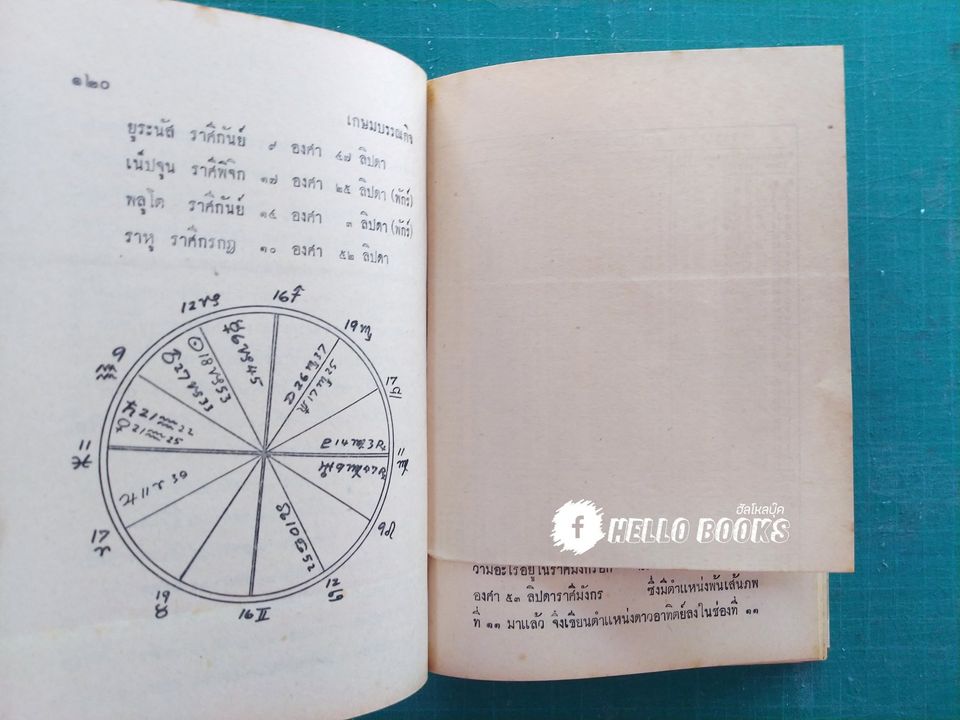 ๑๒๐
เกษมบรรณกิจ
ยุระนัส ราศีกันย์ ๙ องศา ๔๗ ลิปดา
เน็ปจุน ราศีพิจิก ๑๗ องศา ๒๕ ลิปดา (พักร์)
พลูโต ราศีกันย์ ๑๔ องศา ๓ ลิปดา (พักร์)
ราหู ราศีกรกฎ ๑๐ องศา ๕๒ ลิปดา
12 ♑
16 ♐
19 ♏
17 ♎
11 ♍
9 ♒
11 ♓
17 ♈
19 ♉
16 ♊
12 ♋
♀ 6 ♑ 45
☉ 18 ♑ 53
27 ♑ 33
♄ 21 ♒ 22
21 ♒ 25
♃ 11 ♈ 39
☊ 10 ♋ 52
☽ 26 ♏ 37
17 ♏ 25
ฮัลโหลบุ๊ค
f HELLO BOOKS
องศา ๕๓ ลิปดาราศีมังกร ซึ่งมีตำแหน่งพ้นเส้นภพ
ที่ ๑๑ มาแล้ว จึงเขียนตำแหน่งดาวอาทิตย์ลงในช่องที่ ๑๑